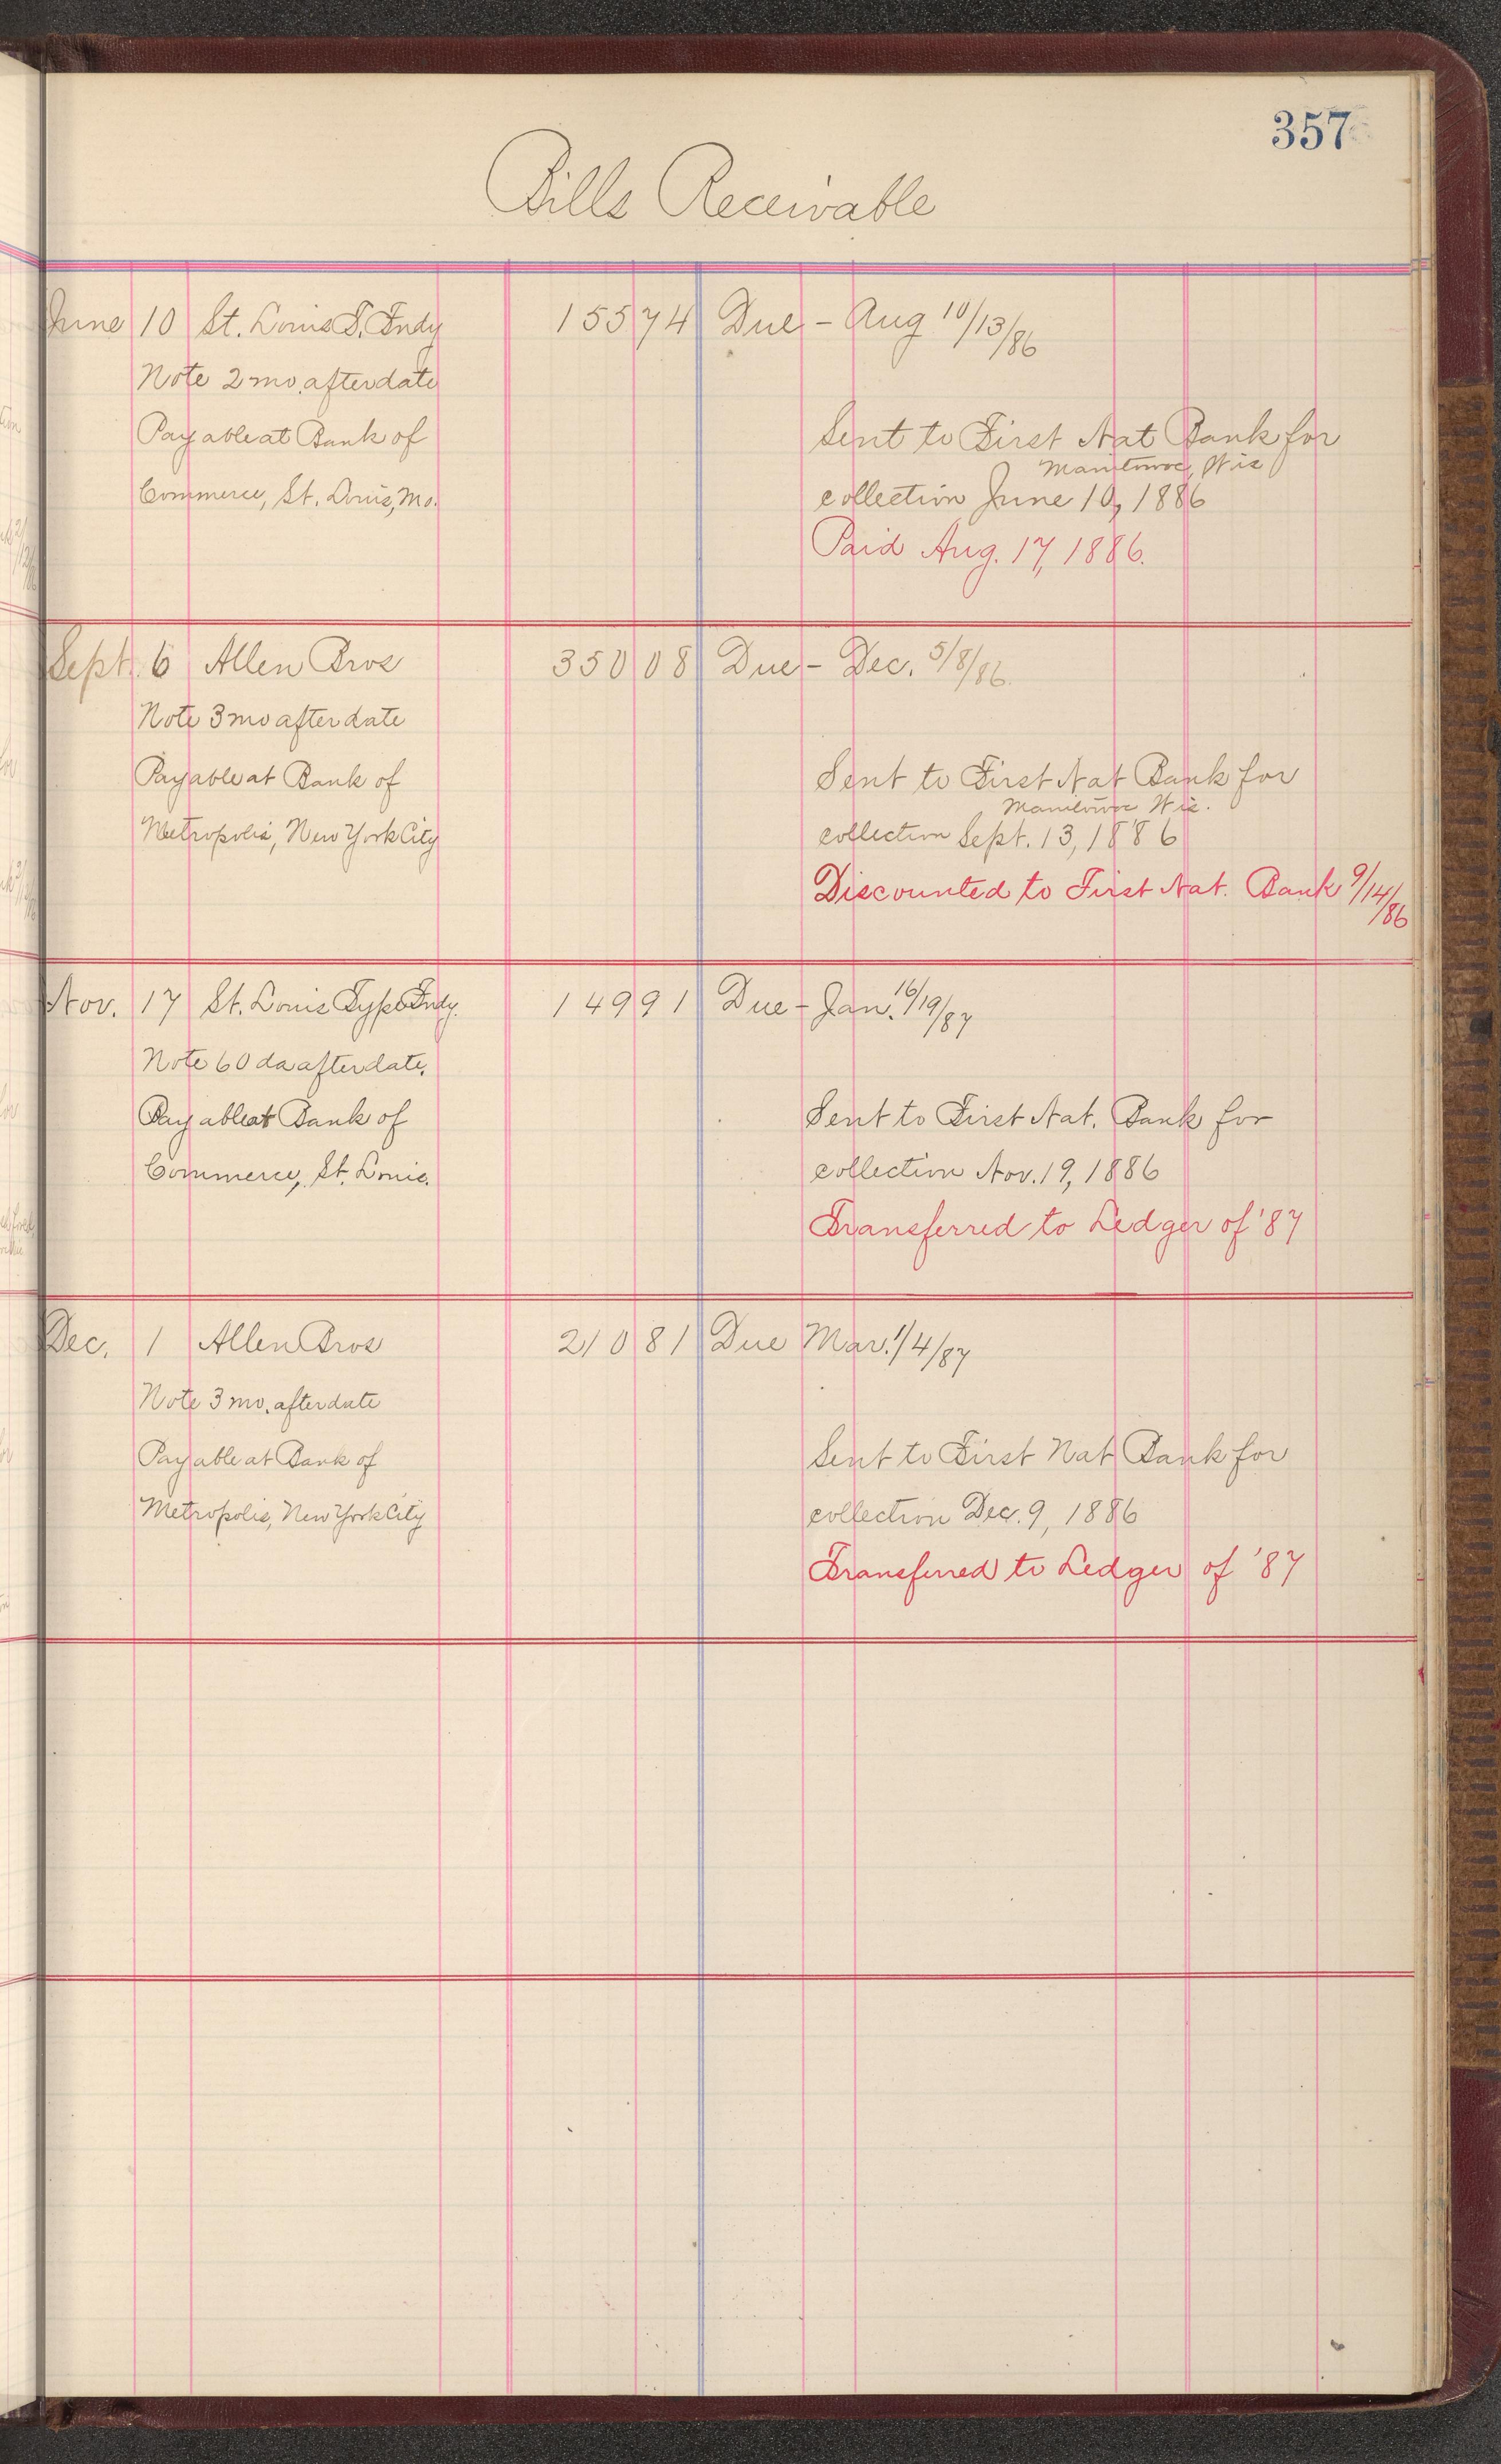 357
Bills Receivable
June 10 St. Louis T. Fndy 155 74 Due - Aug 10/13/86
Note 2 mo. after date
Payable at Bank of Sent to First Nat Bank for
Manitowoc, Wis
Commerce, St. Louis, Mo. collection June 10, 1886
Paid Aug. 17, 1886.
Sept. 6 Allen Bros 350 08 Due - Dec. 5/8/86
Note 3 mo after date
Payable at Bank of Sent to First Nat Bank for
Manitowoc Wis.
Metropolis, New York City collection Sept. 13, 1886
Discounted to First Nat. Bank 9/14/86
Nov. 17 St. Louis Type Fndy. 149 91 Due - Jan. 16/19/87
Note 60 da after date.
Payable at Bank of Sent to First Nat. Bank for
Commerce, St. Louis. collection Nov. 19, 1886
Transferred to Ledger of '87
Dec. 1 Allen Bros 210 81 Due Mar. 1/4/87
Note 3 mo. after date
Payable at Bank of Sent to First Nat Bank for
Metropolis, New York City collection Dec. 9, 1886
Transferred to Ledger of '87